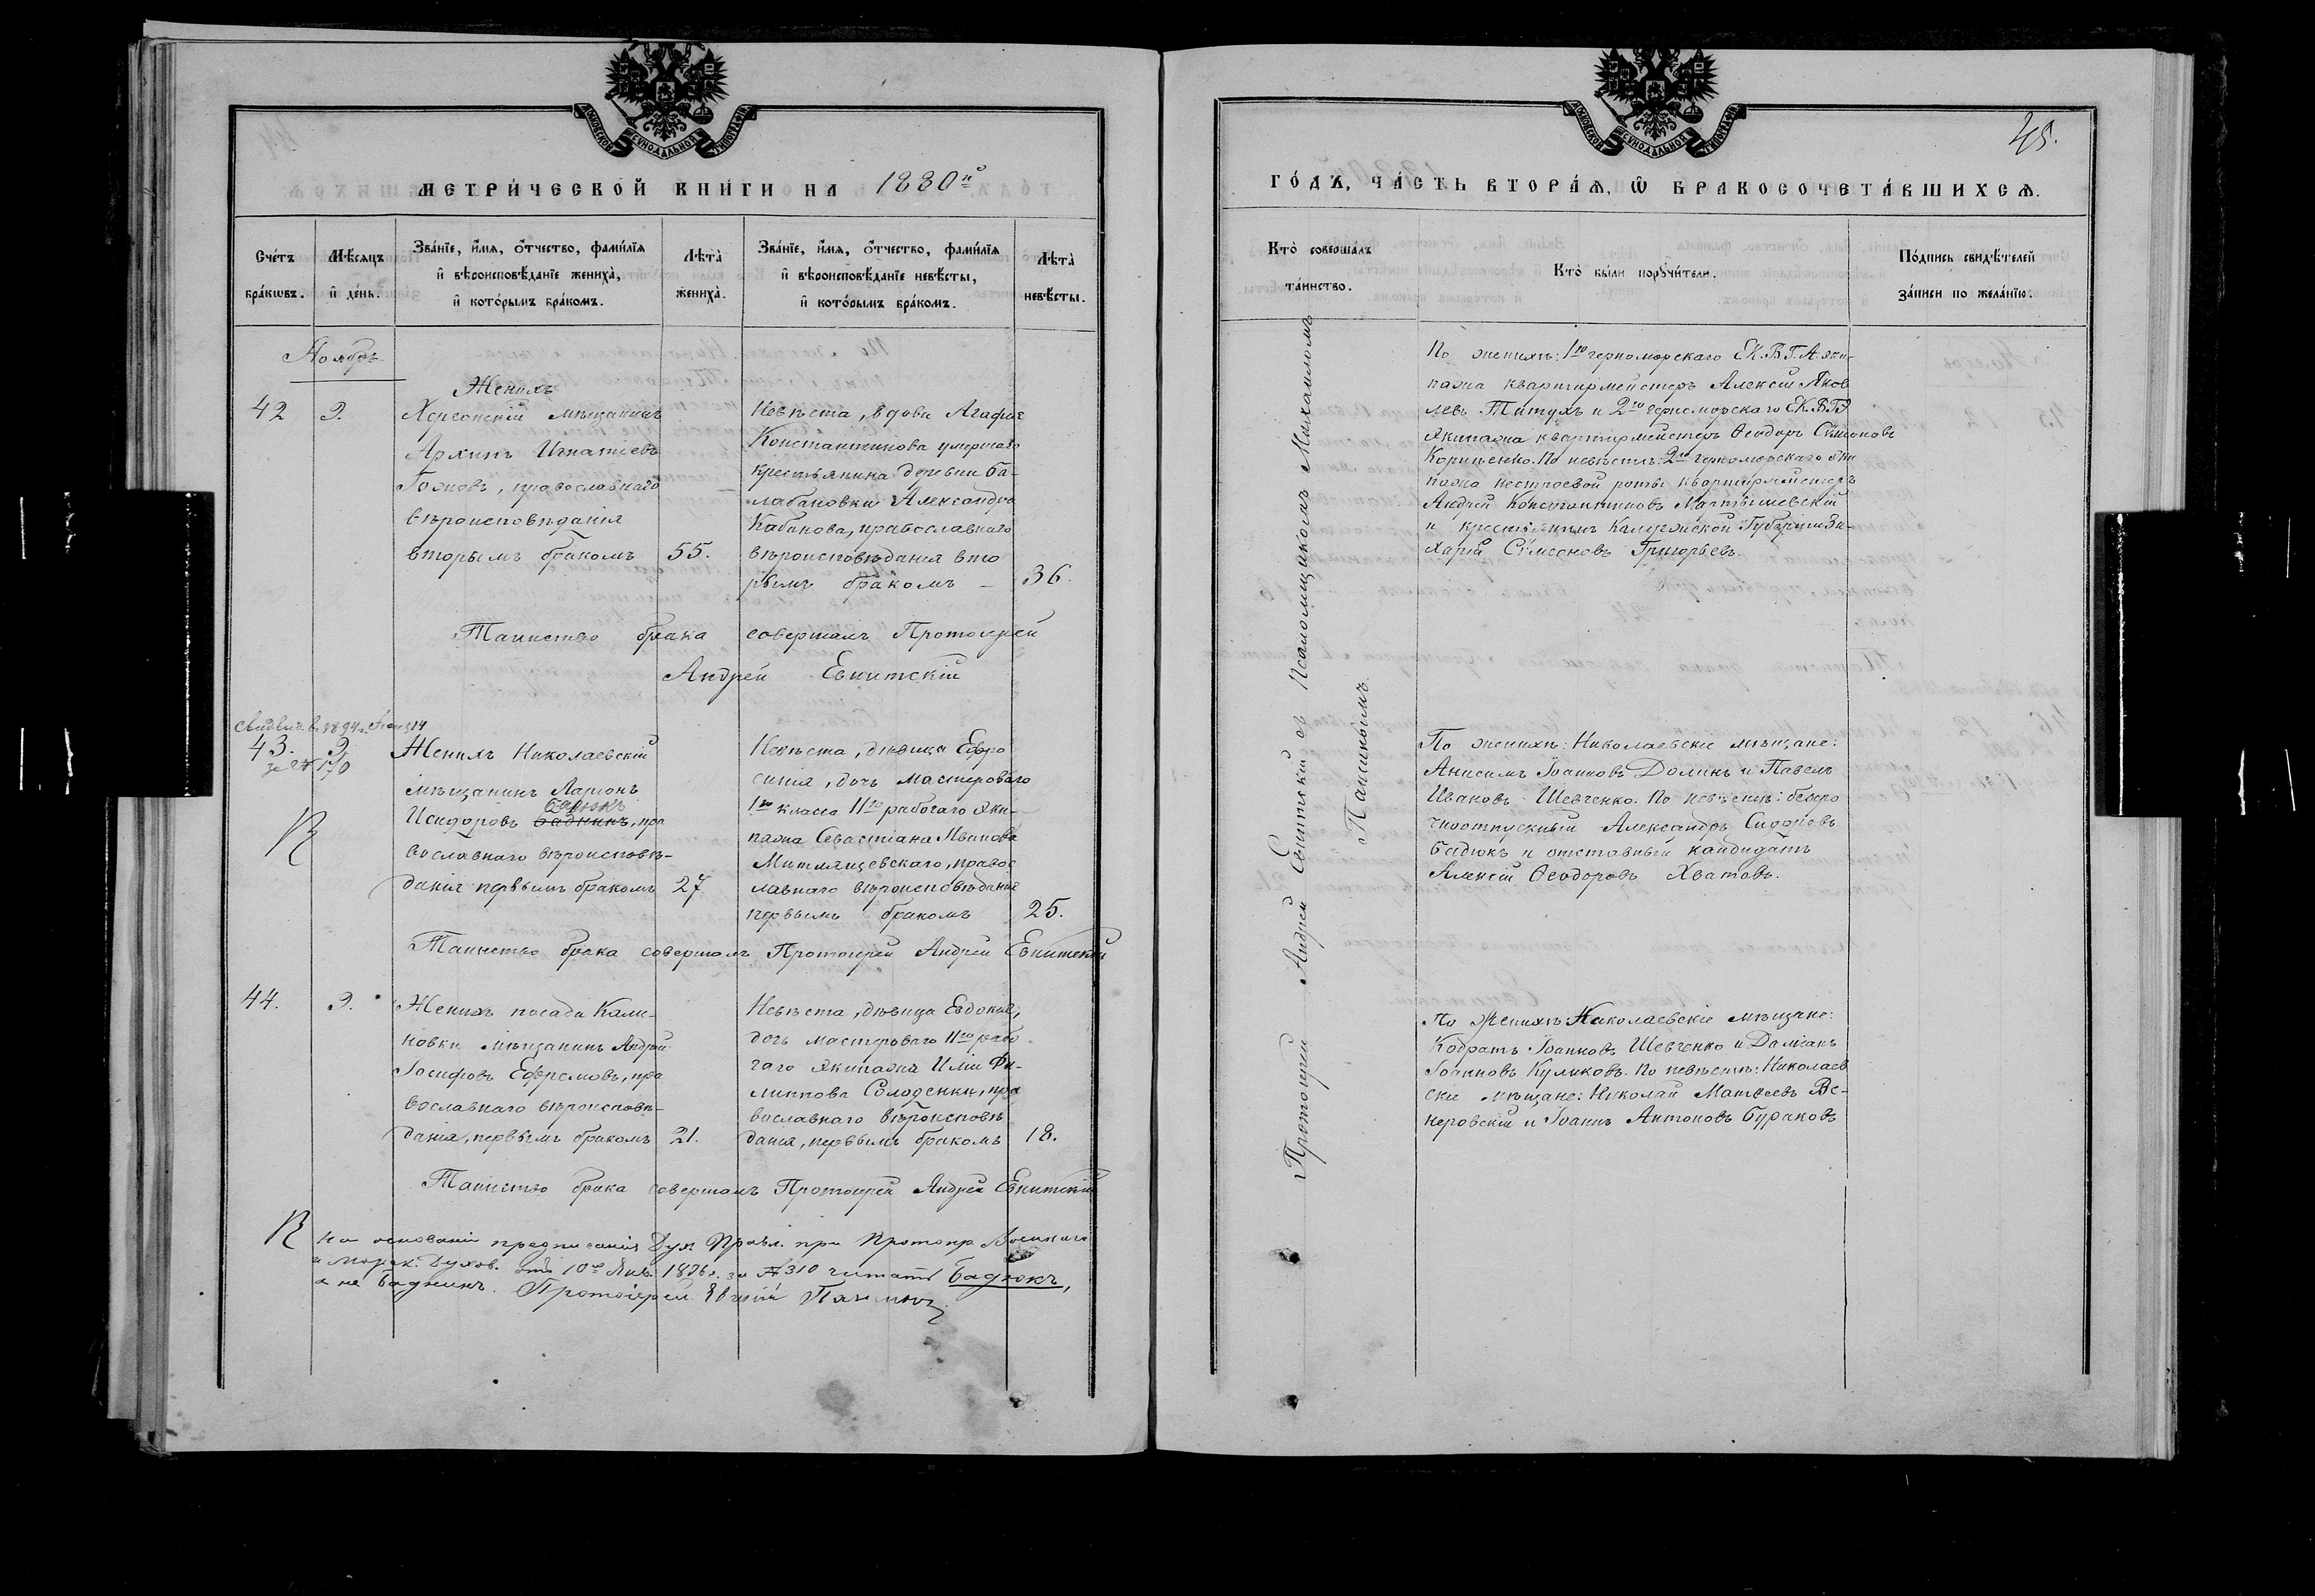 МОСКОВСКОЙ СѴНОДАЛЬНОЙ ТИПОГРАФІИ
МЕТРИ́ЧЕСКОЙ КНИ́ГИ НА 1880й
Сче́тъ бра́кѡвъ.
Мѣ́сяцъ и҆ де́нь.
Зва́нїе, и҆́мя, о҆́тчество, фами́лїя
и҆ вѣроисповѣ́данїе жениха̀,
и҆ кото́рымъ бра́комъ.
Лѣта̀ жениха̀.
Зва́нїе, и҆́мя, о҆́тчество, фами́лїя
и҆ вѣроисповѣ́данїе невѣ́сты,
и҆ кото́рымъ бра́комъ.
Лѣта̀ невѣ́сты.
Ноябрь
42 9.
Женихъ
Херсонскій мѣщанинъ
Архипъ Игнатіевъ
православнаго
вѣроисповѣданія
вторымъ бракомъ 55.
Невѣста, вдова Агафія
Константинова умершаго
крестьянина деревни Ба-
лабановки Александра
Кабанова, православнаго
вѣроисповѣданія вто
рымъ бракомъ – 36.
Таинство брака совершалъ Протоіерей
Андрей Евнитскій
Свидѣт. въ 1894 г.
43. 9.
за № 170
Женихъ Николаевскій
мѣщанинъ Ларіонъ
Бадюкъ
Исидоровъ Баднинъ, пра
вославнаго вѣроисповѣ-
данія первымъ бракомъ 27
Невѣста, дѣвица Евфро
синія, дочь мастероваго
1го класса 11го рабочаго эки-
пажа Севастіана Иванова
православнаго вѣроисповѣданія
первымъ бракомъ 25.
Таинство брака совершалъ Протоіерей Андрей Евнитскій
44. 9.
Женихъ посада Кали-
новки мѣщанинъ Андрей
Іосифовъ Ефремовъ, пра
вославнаго вѣроисповѣ-
данія, первымъ бракомъ 21.
Невѣста, дѣвица Евдокія,
дочь мастероваго 11го рабо
чаго экипажа Иліи Фи-
липпова Солоденки, пра
вославнаго вѣроисповѣ
данія, первымъ бракомъ 18.
Таинство брака совершалъ Протоіерей Андрей Евнитскій
На основаніи предписанія Дух. Правл. при Протопр. Военнаго
и Морск. Духов. отъ 10го Янв. за № 310 читать Бадюкъ,
а не Баднинъ. Протоіерей
МОСКОВСКОЙ СѴНОДАЛЬНОЙ ТИПОГРАФІИ
45.
ГО́ДЪ, ЧА́СТЬ ВТОРА́Я, Ѡ҆ БРАКОСОЧЕТА́ВШИХСЯ.
Кто̀ соверша́лъ
та́инство.
Кто̀ бы́ли порꙋчи́тели.
По́дпись свидѣ́телей
за́писи по жела́нїю.
Протоіерей Андрей Евнитскій съ псаломщикомъ Михаиломъ
По женихѣ: 1го черноморскаго Е.К.В.Г.А. эки-
пажа квартирмейстеръ Алексій Яков
левъ Титухъ и 2го черноморскаго Е.К.В.Г.А
экипажа квартирмейстеръ Ѳеодоръ Сѵмеоновъ
Корниенко. По невѣстѣ: 2го черноморскаго эки
пажа нестроевой роты квартирмейстеръ
Андрей Константиновъ Мартышевскій
и крестьянинъ Калужской губерніи За-
харій Сѵмеоновъ Григорьевъ.
По женихѣ: Николаевскіе мѣщане:
Анисимъ Іоанновъ Долинъ и Павелъ
Ивановъ Шевченко. По невѣстѣ: безсро
чноотпускный Александръ Сидоровъ
Бадюкъ и отставный кандидатъ
Алексій Ѳеодоровъ Хватовъ.
По женихѣ: Николаевскіе мѣщане:
Кодратъ Іоанновъ Шевченко и Даміанъ
Іоанновъ Куликовъ. По невѣстѣ: Николаев
скіе мѣщане: Николай Матвеевъ Ве-
неровскій и Іоаннъ Антоновъ Бураковъ